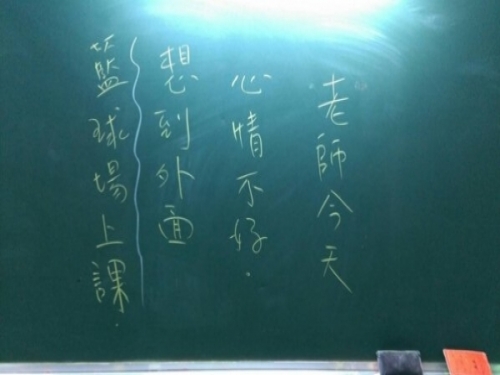 老師今天
心情不好.
想到外面
籃球場上課.